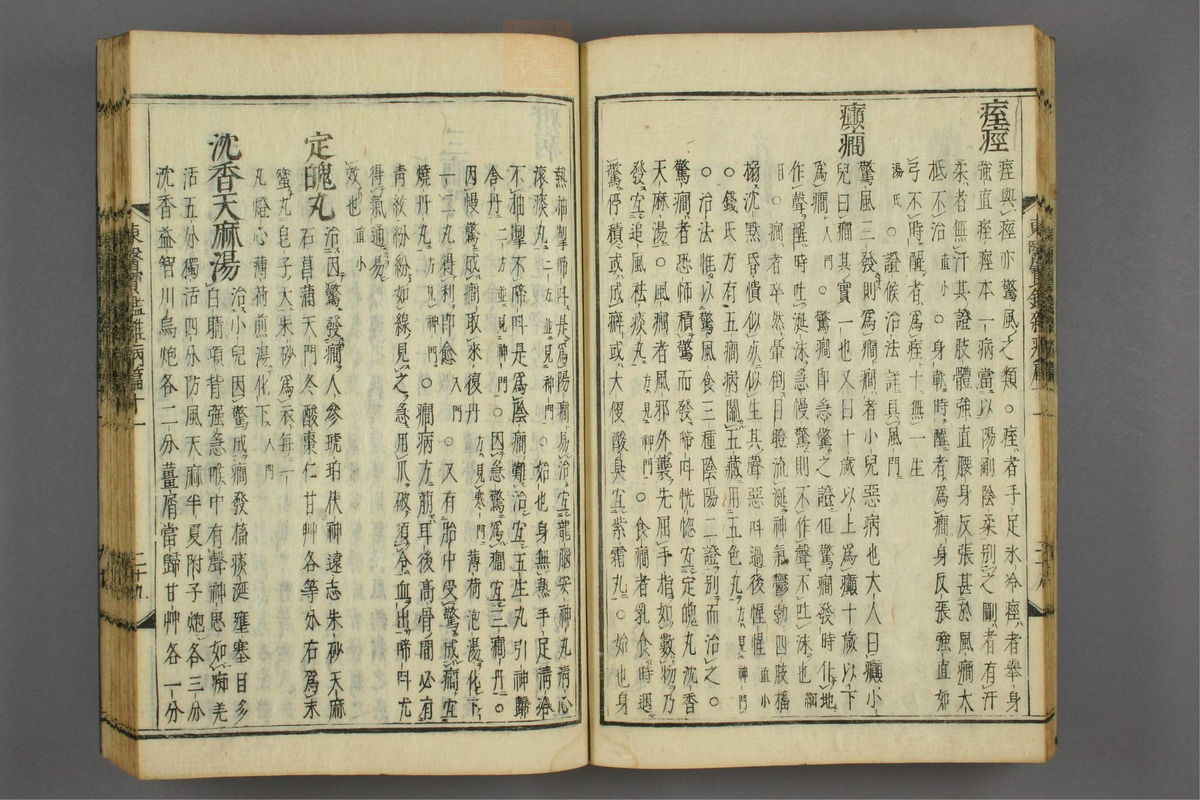 痓痙
痓與痙亦驚風之類○痓者手足氷冷痙者擧身
強直痓痙本一病當以陽剛陰柔別之剛者有汗
柔者無汗其證肢體強直腰身反張甚於風癎大
抵不治直小○身軟時醒者爲癎身反張強直如
弓不時醒者爲痓十無一生
湯氏○證候治法詳具風門
癲癎
驚風三發則爲癎癎者小兒惡病也大人曰癲小
兒曰癎其實一也又曰十歲以上爲癲十歲以下
爲癎入門○驚癎卽急驚之證但驚癎發時仆地
作聲醒時吐涎沫急慢驚則不作聲不吐沫也綱
目○癎者卒然暈倒目瞪流涎神氣鬱勃四肢搐
搦沈默昏憒似死似生其聲惡叫過後惺惺直小
○錢氏方有五癎病關五藏用五色丸方見神門
○治法惟以驚風食三種陰陽二證別而治之○
驚癎者恐怖積驚而發啼叫恍惚宜定魄丸沈香
天麻湯○風癎者風邪外襲先屈手指如數物乃
發宜追風祛痰丸方見神門○食癎者乳食時遇
驚停積或成癖或大便酸臭宜紫霜丸○如也身
熱抽掣啼叫是爲陽癎易治宜龍腦安神丸淸心
滾痰丸二方並見神門○如也身無熱手足淸冷
不抽掣不啼叫是爲陰癎難治宜五生丸引神歸
舍丹二方並見神門○因急驚爲癎宜三癎丹○
因慢驚成癎取來復丹方見寒門薄荷泡湯化下
一二丸得利卽愈入門○又有胎中受驚成癎宜
燒丹丸方見神門○癎病方萠耳後高骨間必有
靑紋紛紛如線見之急用爪破須令血出啼叫尤
得氣通易
效也直小
定魄丸
治因驚發癎人參琥珀茯神遠志朱砂天麻
石菖蒲天門冬酸棗仁甘艸各等分右爲末
蜜丸皂子大朱砂爲衣每一
丸燈心薄荷煎湯化下入門
沈香天麻湯
治小兒因驚成癎發搐痰涎壅塞目多
白睛項背强急喉中有聲神思如痴羌
活五分獨活四分防風天麻半夏附子炮各三分
沈香益智川烏炮各二分薑屑當歸甘艸各一分
東醫寶鑑雜病篇十一
二十九